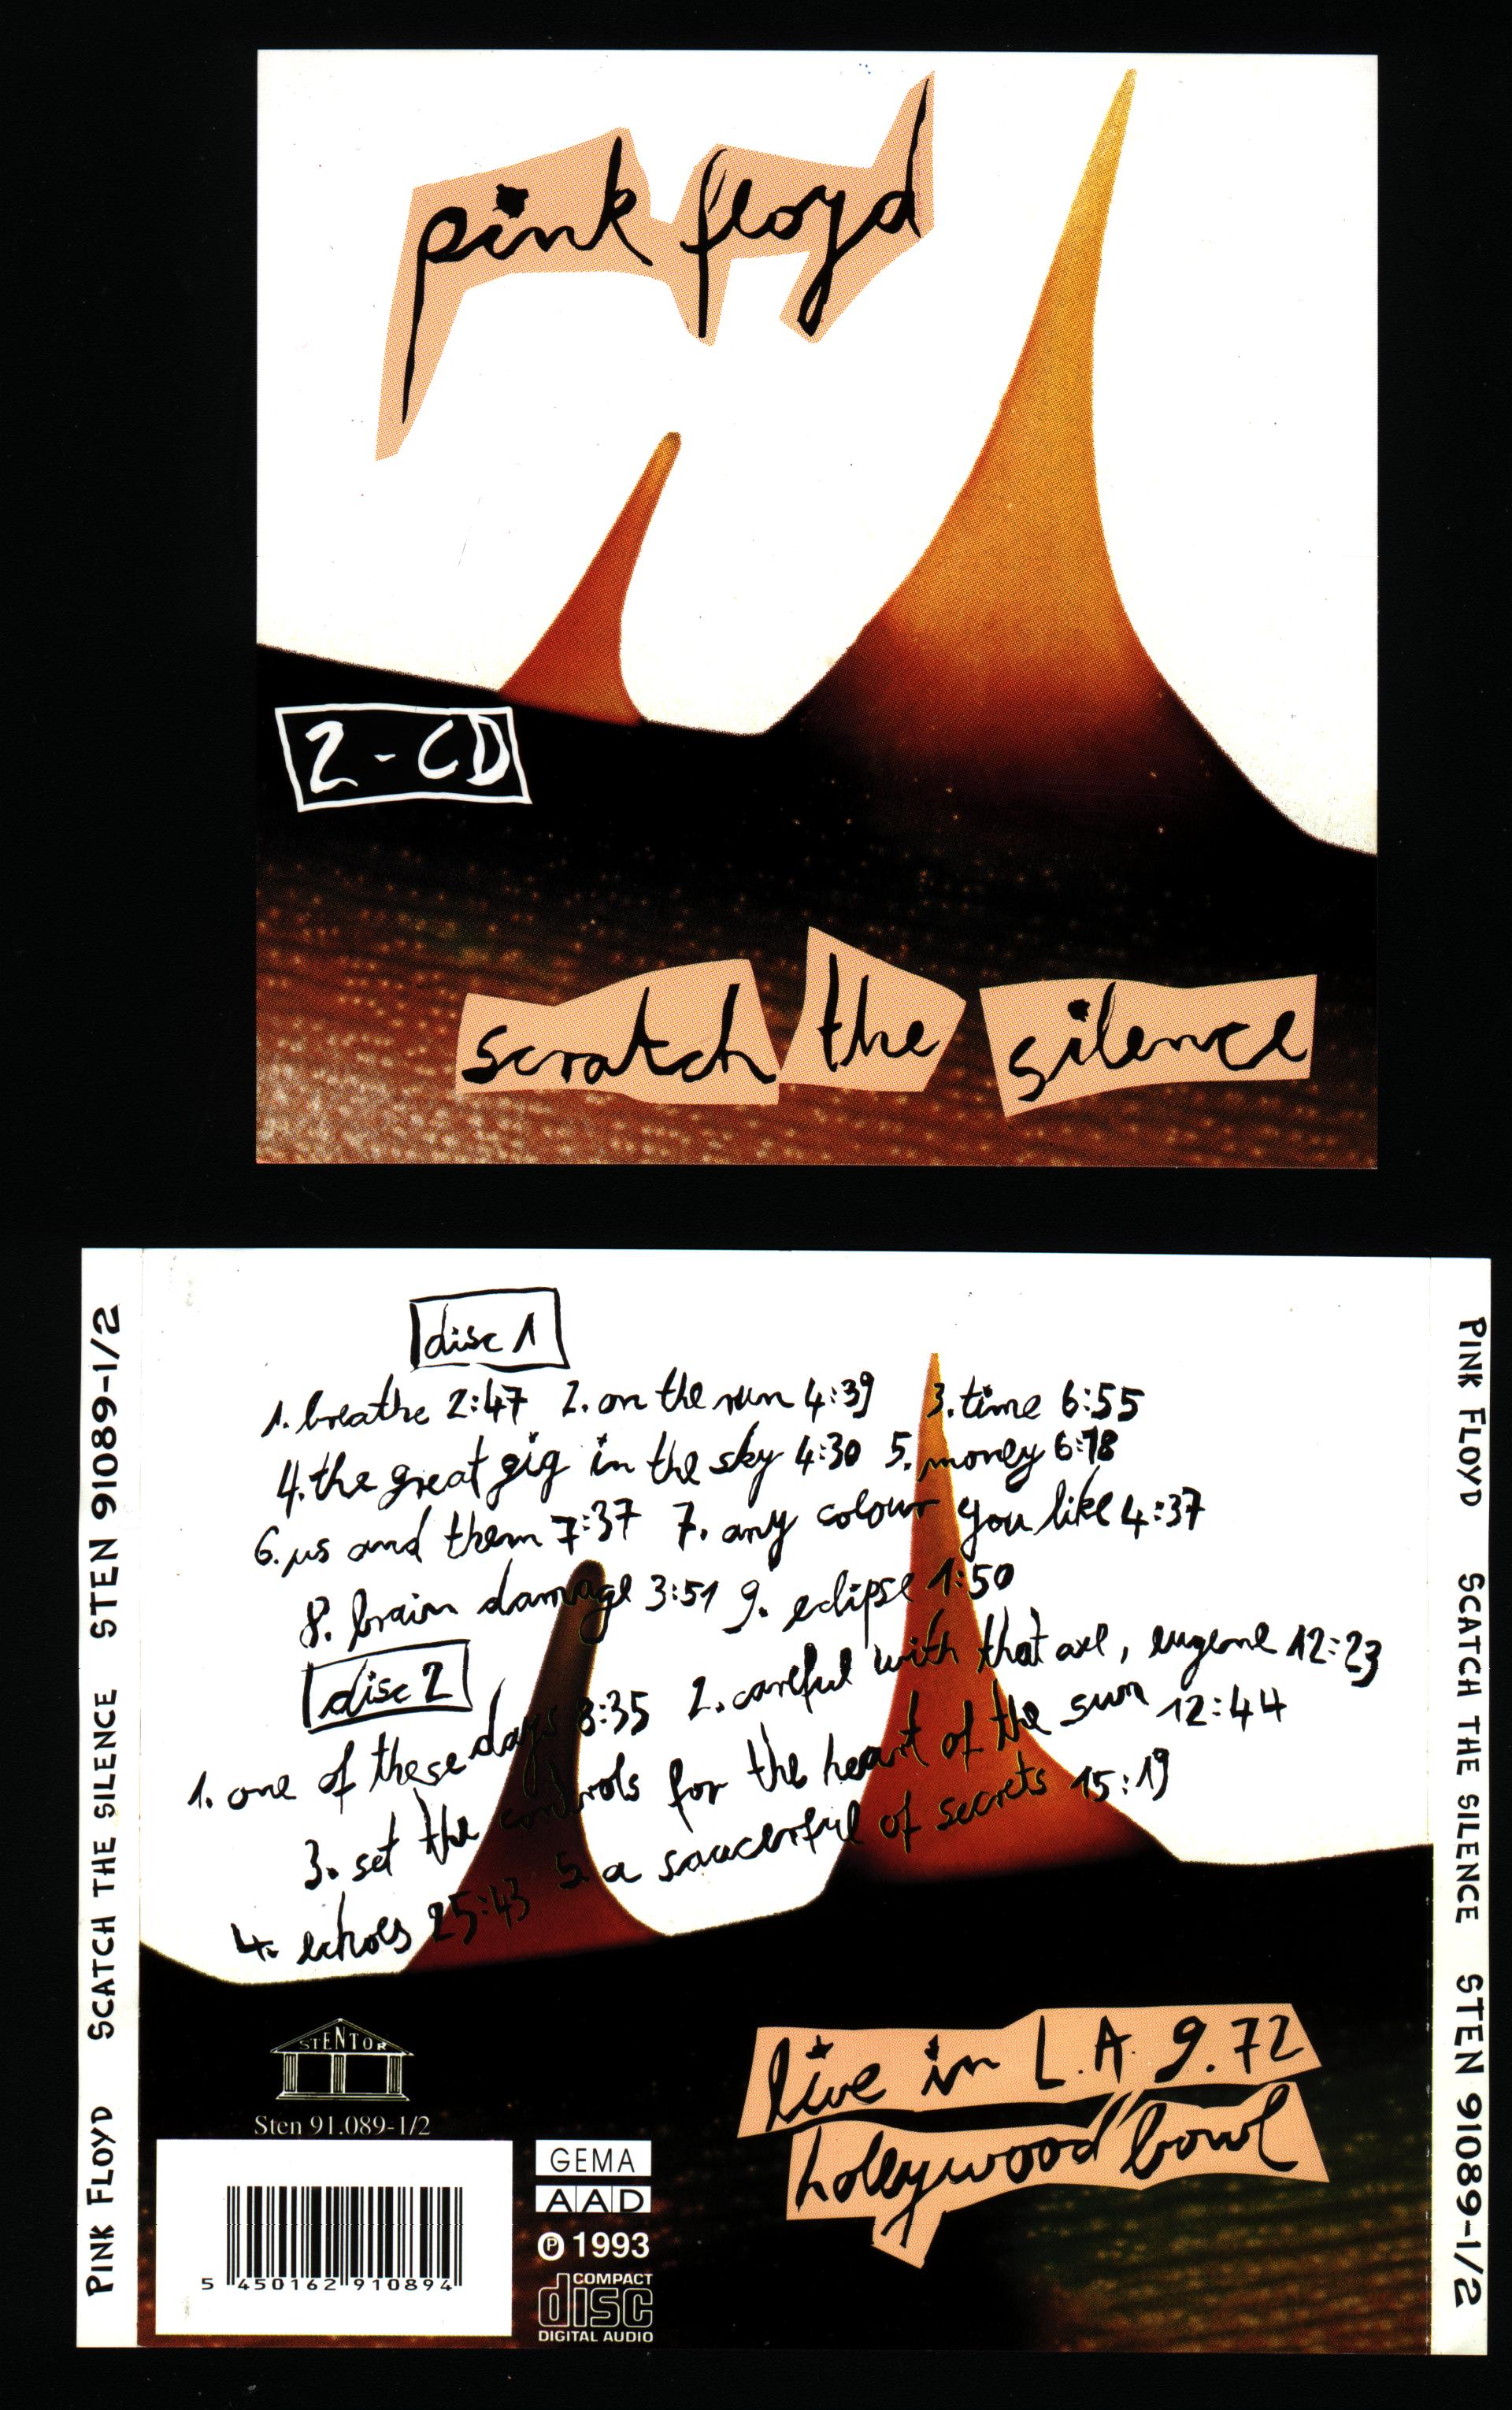 pink floyd
2-CD
scratch the silence
disc 1
1. breathe 2:47 2. on the run 4:39 3. time 6:55
4. the great gig in the sky 4:30 5. money 6:18
6. us and them 7:37 7. any colour you like 4:37
8. brain damage 3:51 9. eclipse 1:50
disc 2
1. one of these days 8:35 2. careful with that axe, eugene 12:23
3. set the controls for the heart of the sun 12:44
4. echoes 25:43 5. a saucerful of secrets 15:19
live in L.A. 9.72
hollywood bowl
STENTOR
Sten 91.089-1/2
5 450162 910894
GEMA
AAD
℗ 1993
COMPACT
disc
DIGITAL AUDIO
PINK FLOYD SCATCH THE SILENCE STEN 91089-1/2
PINK FLOYD SCATCH THE SILENCE STEN 91089-1/2